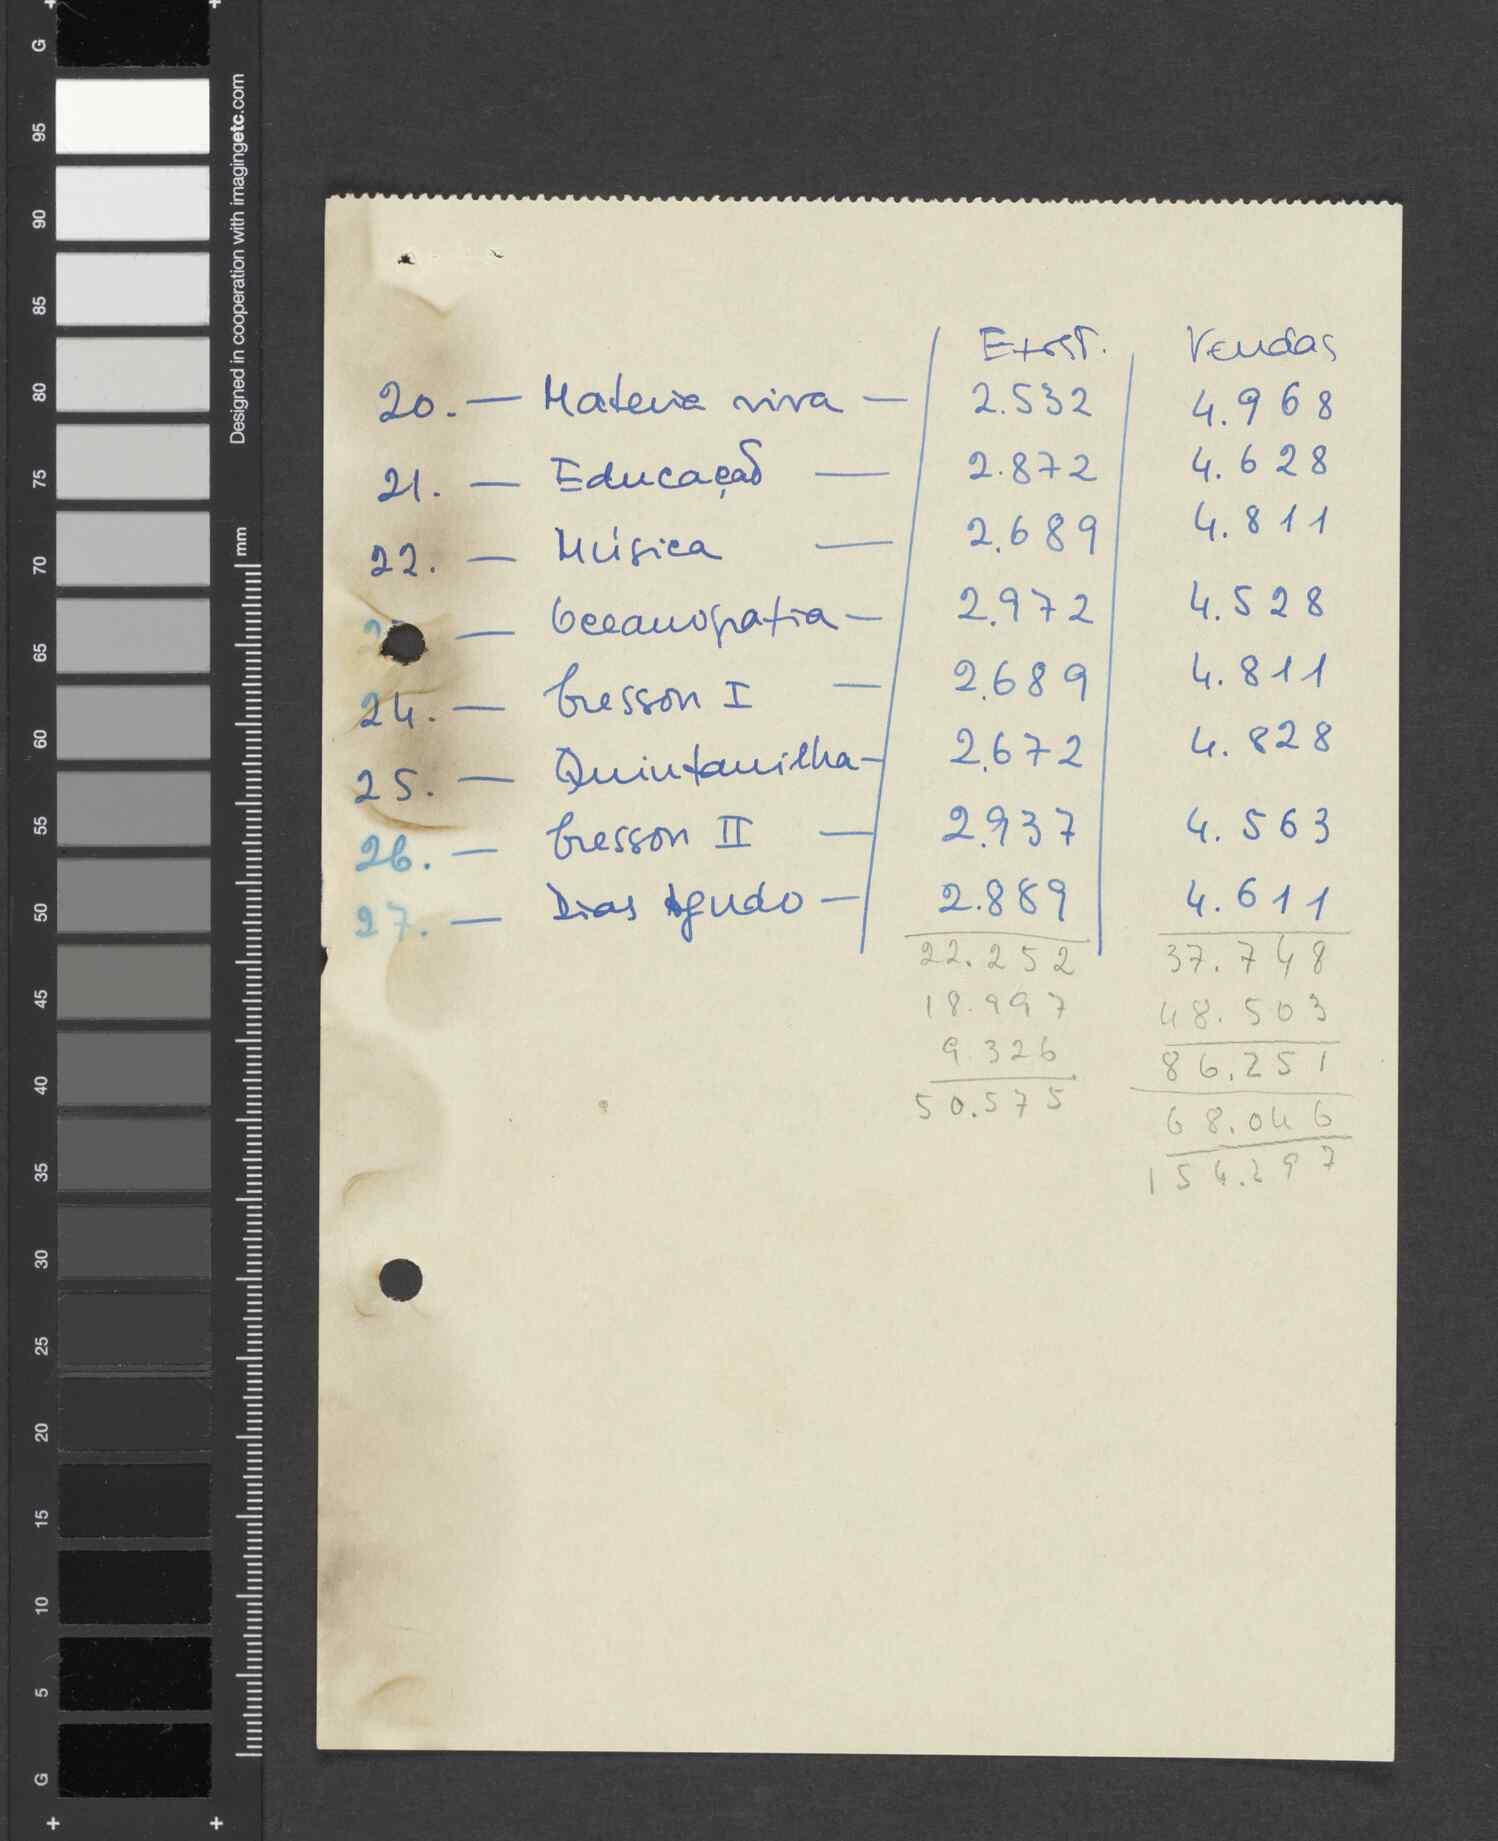 Exist. Vendas
20. — Materia viva — 2.532 4.968
21. — Educação — 2.872 4.628
22. — Música — 2.689 4.811
— Oceanografia — 2.972 4.528
24. — Cresson I — 2.689 4.811
25. — Quintanilha — 2.672 4.828
26. — Cresson II — 2.937 4.563
27. — Dias Agudo — 2.889 4.611
22.252 37.748
18.997 48.503
9.326 86.251
50.575 68.046
154.297
G
95
90
85
80
75
70
65
60
55
50
45
40
35
30
25
20
15
10
5
G
Designed in cooperation with imagingetc.com
mm